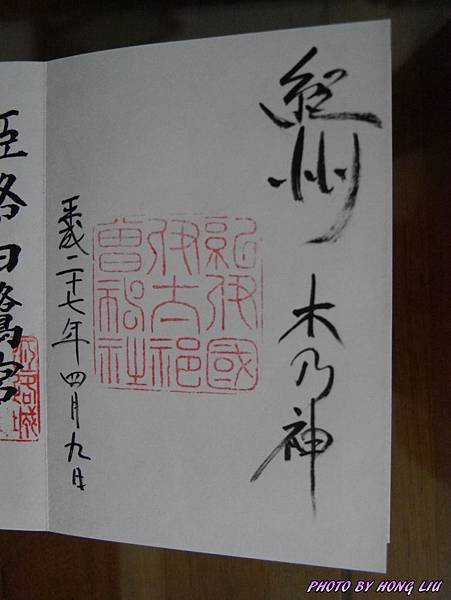 紀州 木乃神
紀伊國
伊太祁
曽神社
平成二十七年四月九日
PHOTO BY HONG LIU